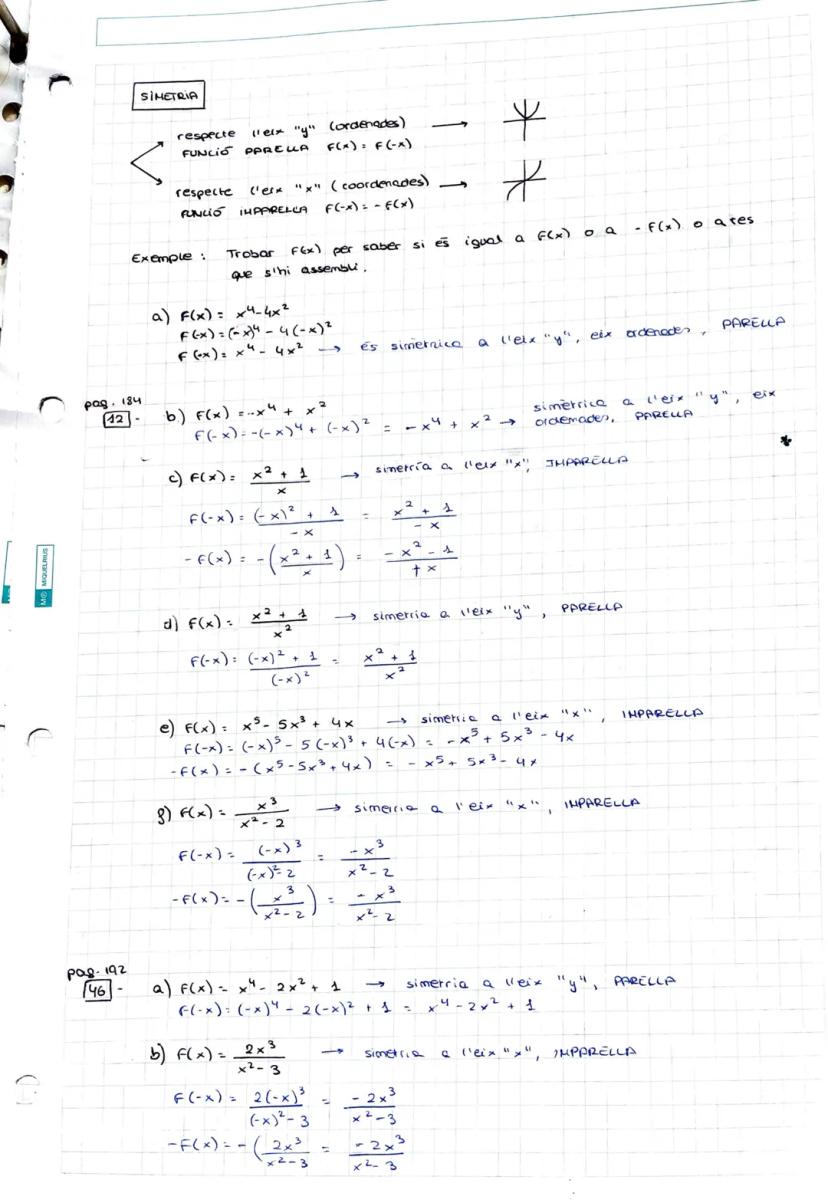 SIMETRIA
respecte l'eix "y" (ordenades) →
FUNCIÓ PARELLA F(x) = F(-x)
respecte l'eix "x" (coordenades) →
FUNCIÓ IMPARELLA F(-x) = -F(x)
Exemple : Trobar F(x) per saber si és igual a F(x) o a -F(x) o a res
que s'hi assembli.
a) F(x) = x⁴-4x²
F(-x) = (-x)⁴ - 4(-x)²
F(-x) = x⁴ - 4x² → és simètrica a l'eix "y", eix ordenades, PARELLA
pag. 184
12 - b) F(x) = -x⁴ + x²
F(-x) = -(-x)⁴ + (-x)² = -x⁴ + x² → simètrica a l'eix "y", eix
ordenades, PARELLA
*
c) F(x) = (x² + 1)/x → simetría a l'eix "x", IMPARELLA
F(-x) = ((-x)² + 1)/(-x) = (x² + 1)/(-x)
-F(x) = -((x² + 1)/x) = (-x² - 1)/(+x)
MIQUELRIUS
d) F(x) = (x² + 1)/x² → simetria a l'eix "y", PARELLA
F(-x) = ((-x)² + 1)/(-x)² = (x² + 1)/x²
e) F(x) = x⁵ - 5x³ + 4x → simetria a l'eix "x", IMPARELLA
F(-x) = (-x)⁵ - 5(-x)³ + 4(-x) = -x⁵ + 5x³ - 4x
-F(x) = -(x⁵ - 5x³ + 4x) = -x⁵ + 5x³ - 4x
g) F(x) = x³/(x² - 2) → simetria a l'eix "x", IMPARELLA
F(-x) = (-x)³/((-x)² - 2) = -x³/(x² - 2)
-F(x) = -(x³/(x² - 2)) = -x³/(x² - 2)
pag. 192
46 - a) F(x) = x⁴ - 2x² + 1 → simetria a l'eix "y", PARELLA
F(-x) = (-x)⁴ - 2(-x)² + 1 = x⁴ - 2x² + 1
b) F(x) = 2x³/(x² - 3) → simetria a l'eix "x", IMPARELLA
F(-x) = 2(-x)³/((-x)² - 3) = -2x³/(x² - 3)
-F(x) = -(2x³/(x² - 3) = -2x³/(x² - 3)